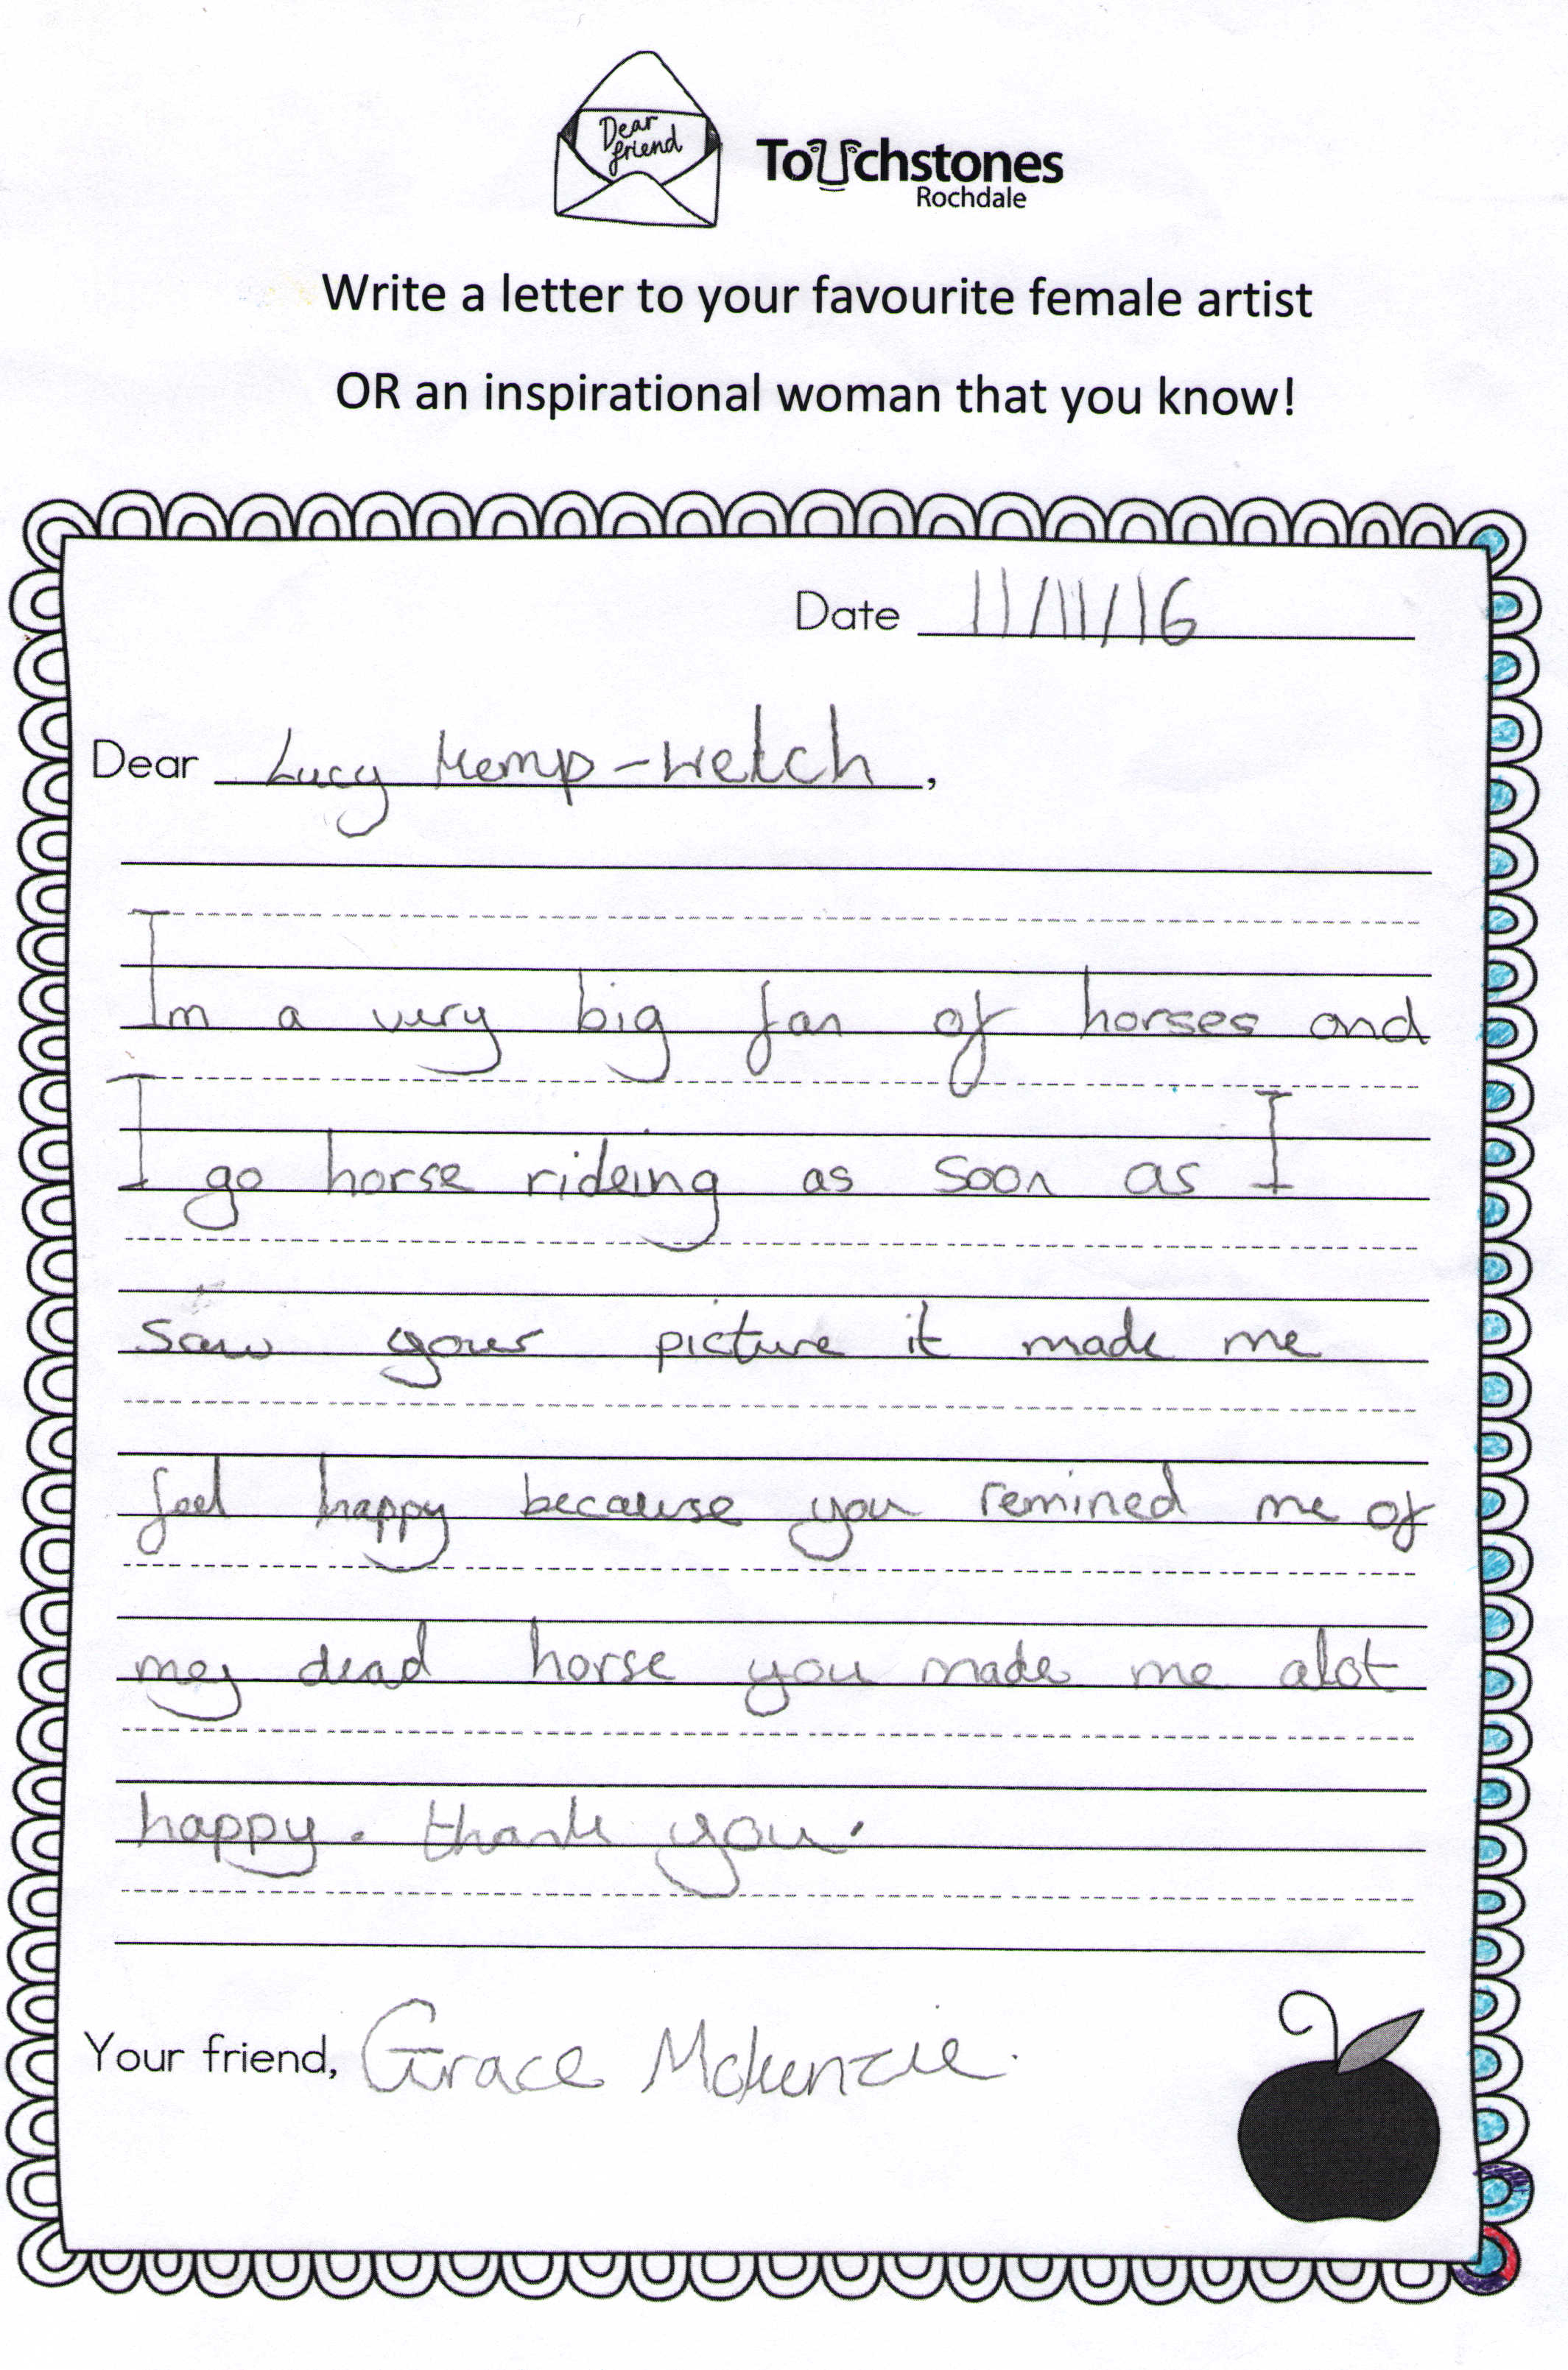 Dear
friend
Touchstones
Rochdale
Write a letter to your favourite female artist
OR an inspirational woman that you know!
Date 11/11/16
Dear Lucy Kemp-Welch,
Im a very big fan of horses and
I go horse rideing as soon as I
saw your picture it made me
feel happy because you remined me of
my dead horse you made me alot
happy. thank you.
Your friend, Grace Mckenzie.